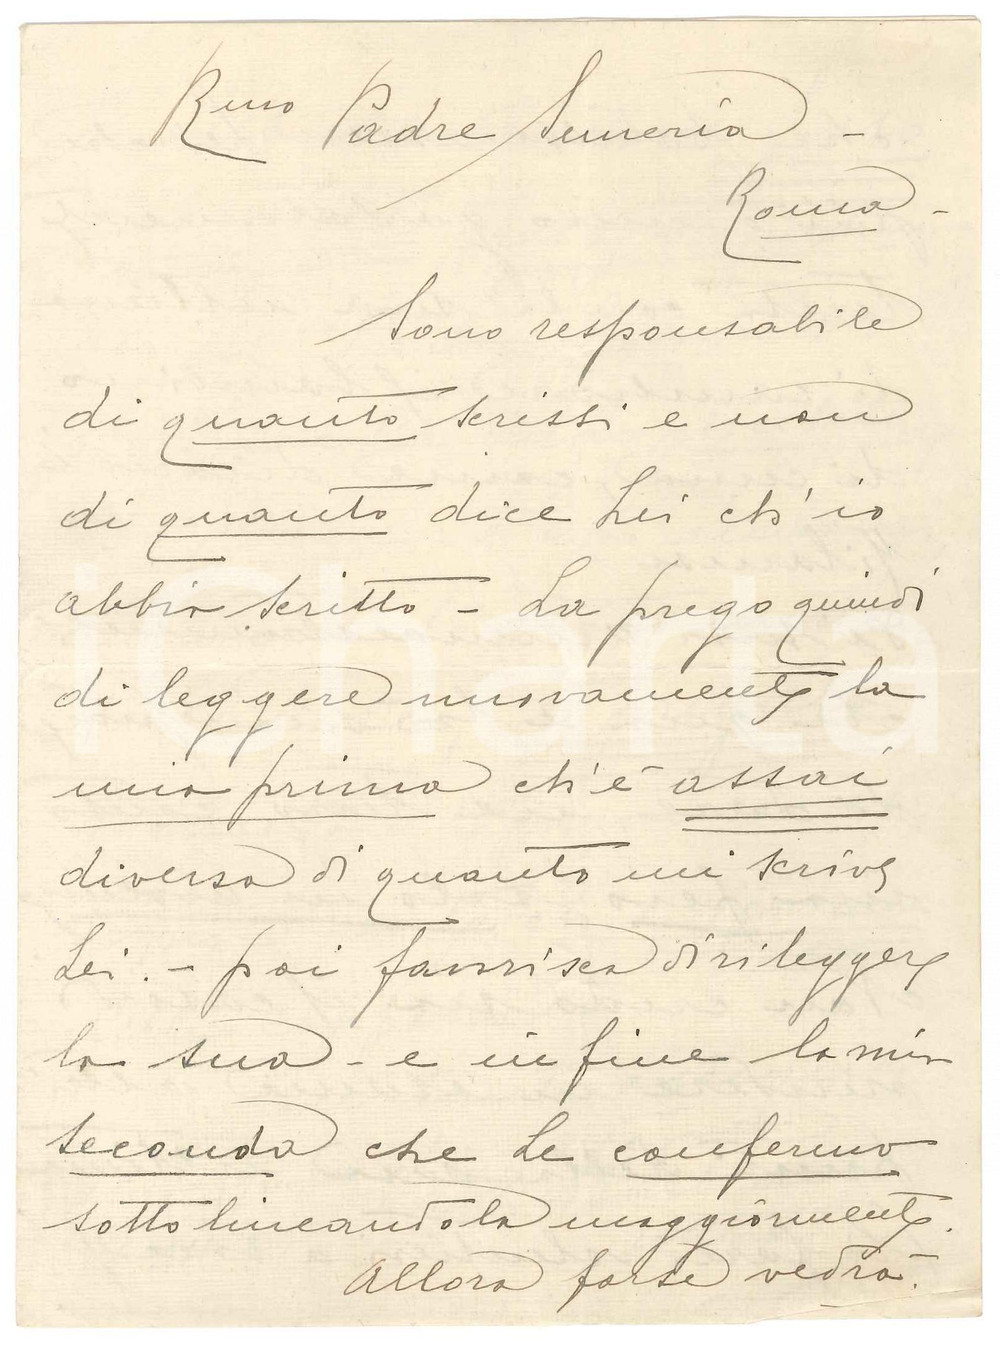 Rmo Padre Semeria -
Roma -
Sono responsabile
di quanto scrissi e non
di quanto dice Lei ch'io
abbia scritto - La prego quindi
di leggere nuovamente la
mia prima ch'è assai
diversa di quanto mi scrive
Lei. - poi favorisca di rileggere
la sua - e in fine la mia
seconda che Le confermo
sottolineandola maggiormente.
Allora forse vedrà.
iCharta